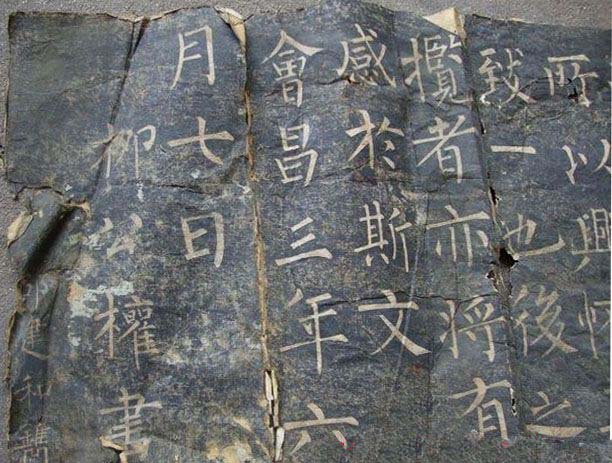 所以興怀
致一也後之
攬者亦将有
感於斯文
會昌三年六
月七日
柳公權書
邵建和鐫